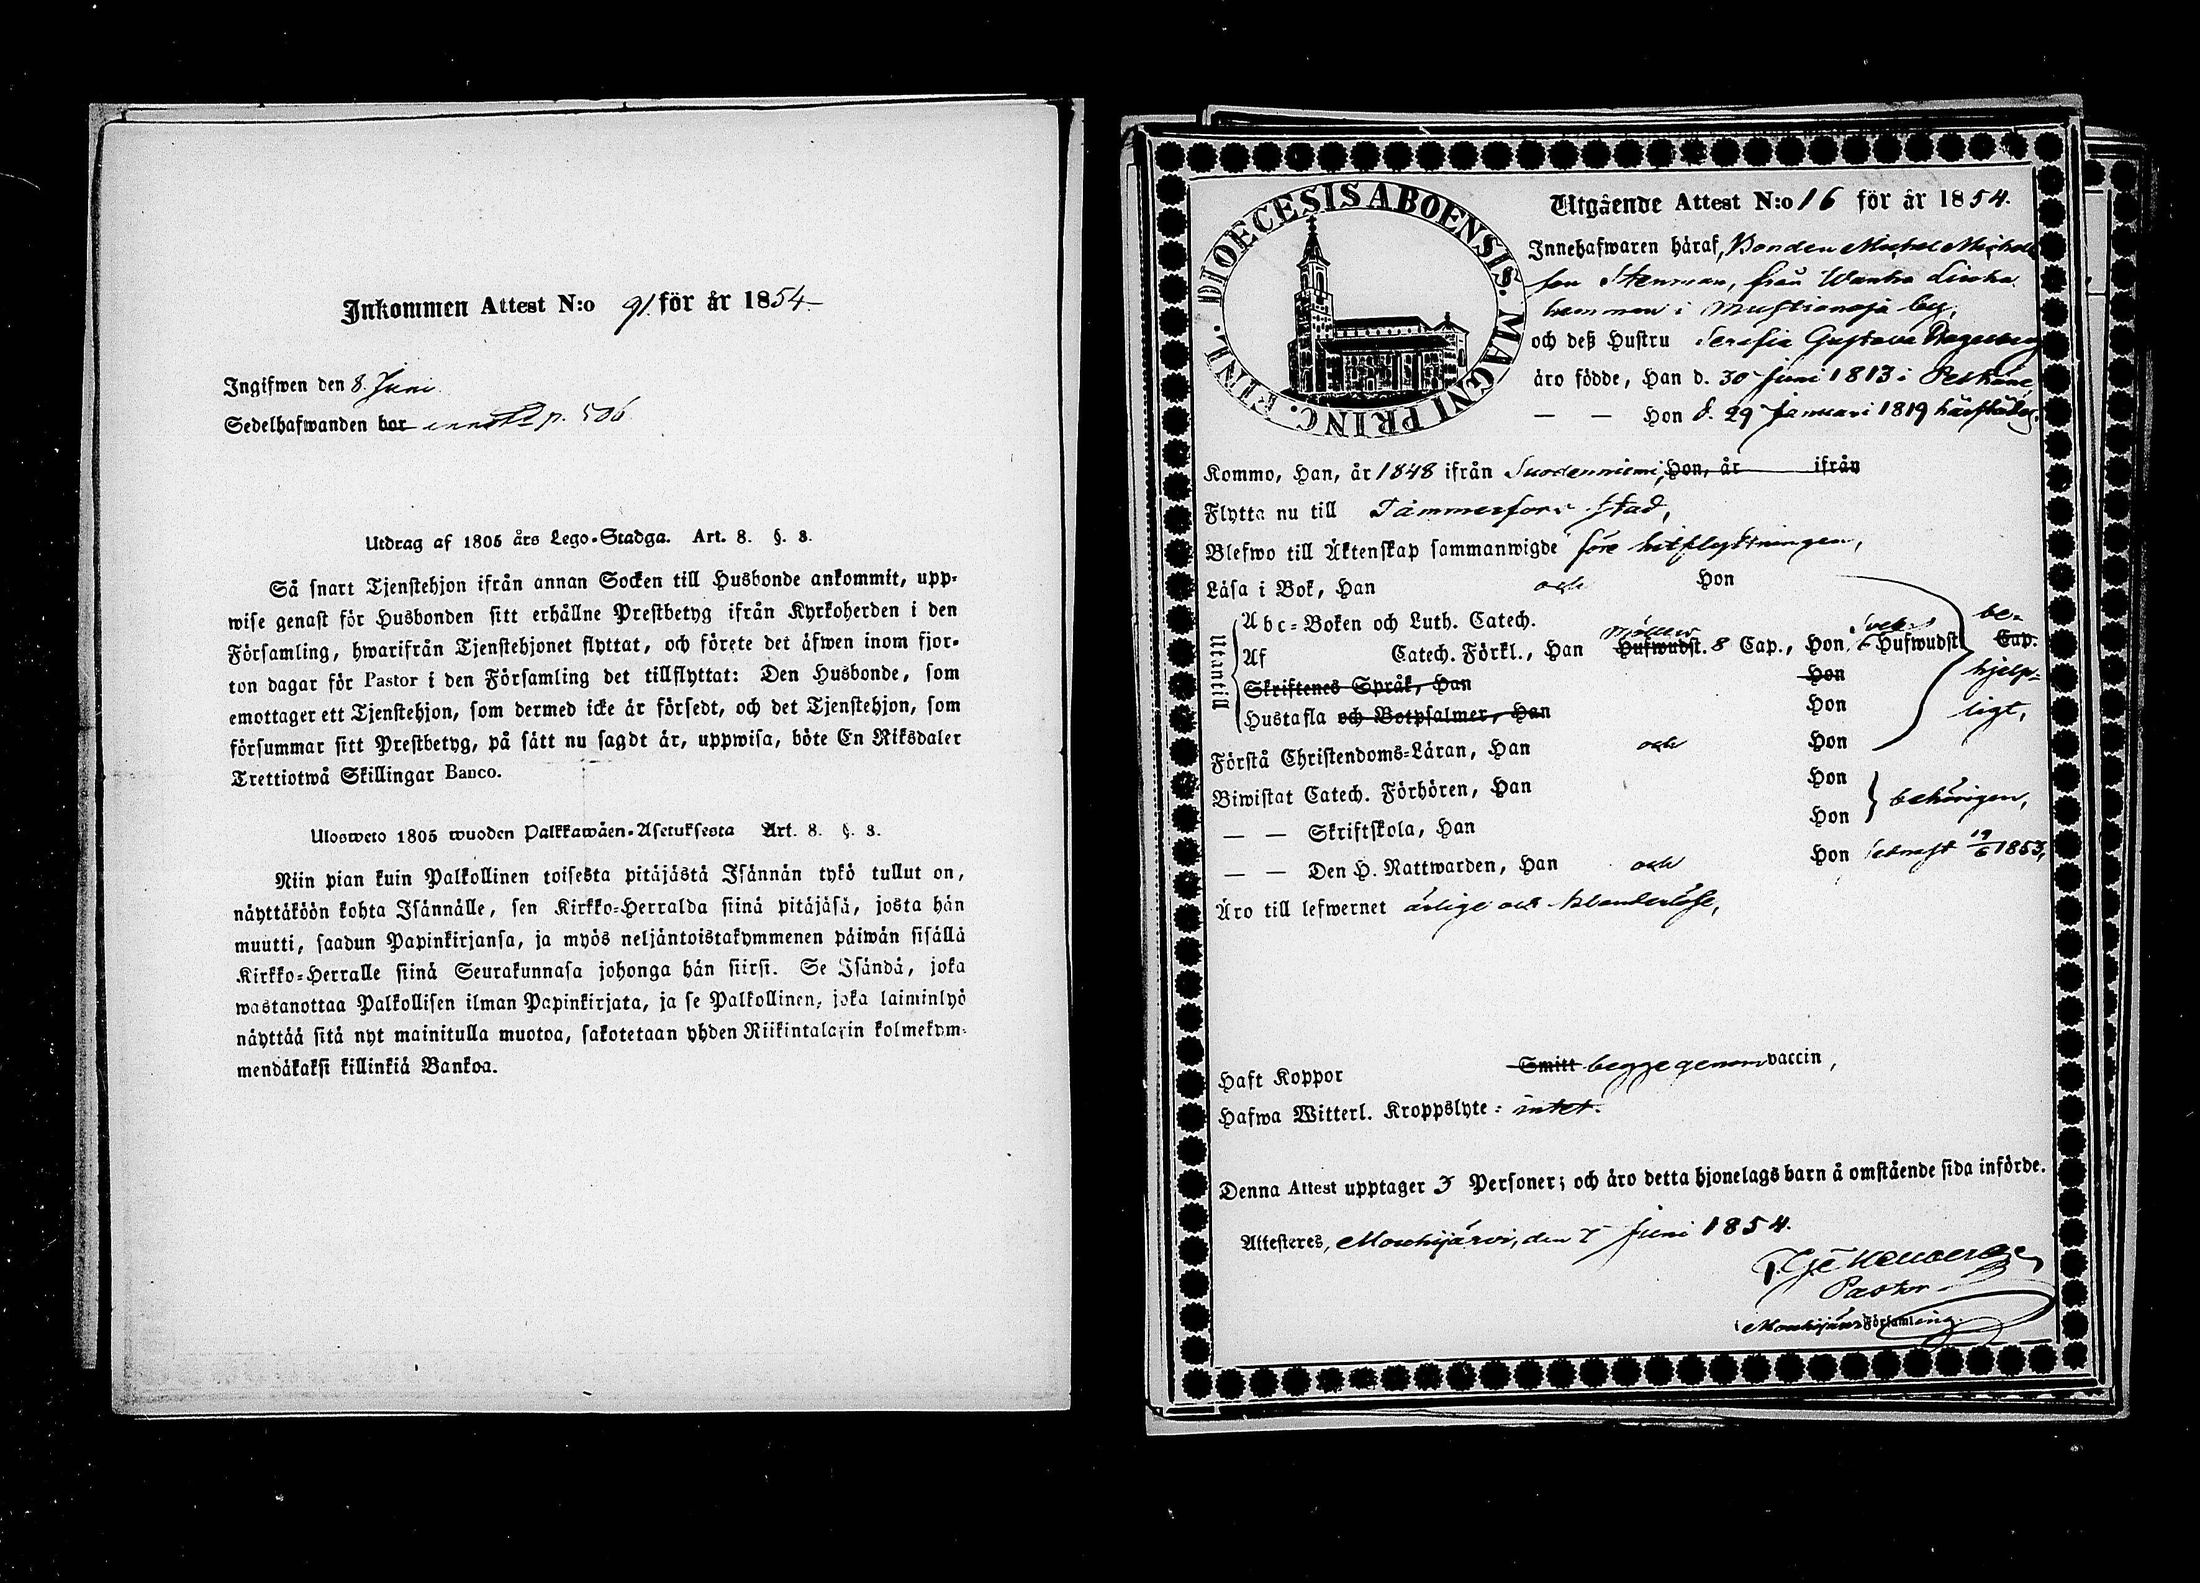 Inkommen Attest N:o 91. för år 1854.
Ingifwen den 8. Juni.
Sedelhafwanden bor p. 506
Utdrag af 1805 års Lego-Stadga. Art. 8. §. 3.
Så snart Tjenstehjon ifrån annan Socken till Husbonde ankommit, upp-
wise genast för Husbonden sitt erhållne Prestbetyg ifrån Kyrkoherden i den
Församling, hwarifrån Tjenstehjonet flyttat, och förete det äfwen inom fjor-
ton dagar för Pastor i den Församling det tillflyttat: Den Husbonde, som
emottager ett Tjenstehjon, som dermed icke är försedt, och det Tjenstehjon, som
försummar sitt Prestbetyg, på sätt nu sagdt är, uppwisa, böte En Riksdaler
Trettiotwå Skillingar Banco.
Ulosweto 1805 wuoden Palkkawäen-Asetuksesta Art. 8. §. 3.
Niin pian kuin Palkollinen toisesta pitäjästä Isännän tykö tullut on,
näyttäköön kohta Isännälle, sen Kirkko-Herralda siinä pitäjäsä, josta hän
muutti, saadun Papinkirjansa, ja myös neljäntoistakymmenen päiwän sisällä
Kirkko-Herralle siinä Seurakunnasa johonga hän siirsi. Se Isändä, joka
wastanottaa Palkollisen ilman Papinkirjata, ja se Palkollinen, joka laiminlyö
näyttää sitä nyt mainitulla muotoa, sakotetaan yhden Riikintalarin kolmekym-
mendäkaksi killinkiä Bankoa.
DIOECESIS ABOENSIS. MAGNI PRINC. FINL.
Utgående Attest N:o 16 för år 1854.
Innehafwaren häraf, Bonden Michel Michels
son Stenman, från Wanha Liuha
hemman i Mustianoja by,
och deß Hustru Serafia Gustava Hageberg
äro födde, Han d. 30 Juni 1813 i Pelkäne,
— — Hon d. 29 Januari 1819 härstädes.
Kommo, Han, år 1848 ifrån Suodenniemi, Hon, år ifrån
Flytta nu till Tammerfors Stad,
Blefwo till Äktenskap sammanwigde före hitflyttningen,
Läsa i Bok, Han och Hon
Utantill
Abc-Boken och Luth. Catech. be-
Af Catech. Förkl., Han Hufwudst. 8 Cap., Hon Hufwudst Cap.
Skriftenes Språk, Han Hon hjelp-
Hustafla och Botpsalmer, Han Hon ligt,
Förstå Christendoms-Läran, Han och Hon
Biwistat Catech. Förhören, Han Hon behörigen,
— — Skriftskola, Han Hon
— — Den H. Nattwarden, Han och Hon sednast 19/6 1853,
Äro till lefwernet ärlige och klanderlöse,
Haft Koppor Smitt begge genom vaccin,
Hafwa Witterl. Kroppslyte: intet.
Denna Attest upptager 3 Personer; och äro detta hjonelags barn å omstående sida införde.
Attesteres, Mouhijärvi, den 7 Juni 1854.
Pastor
i Mouhijärvi Församling.